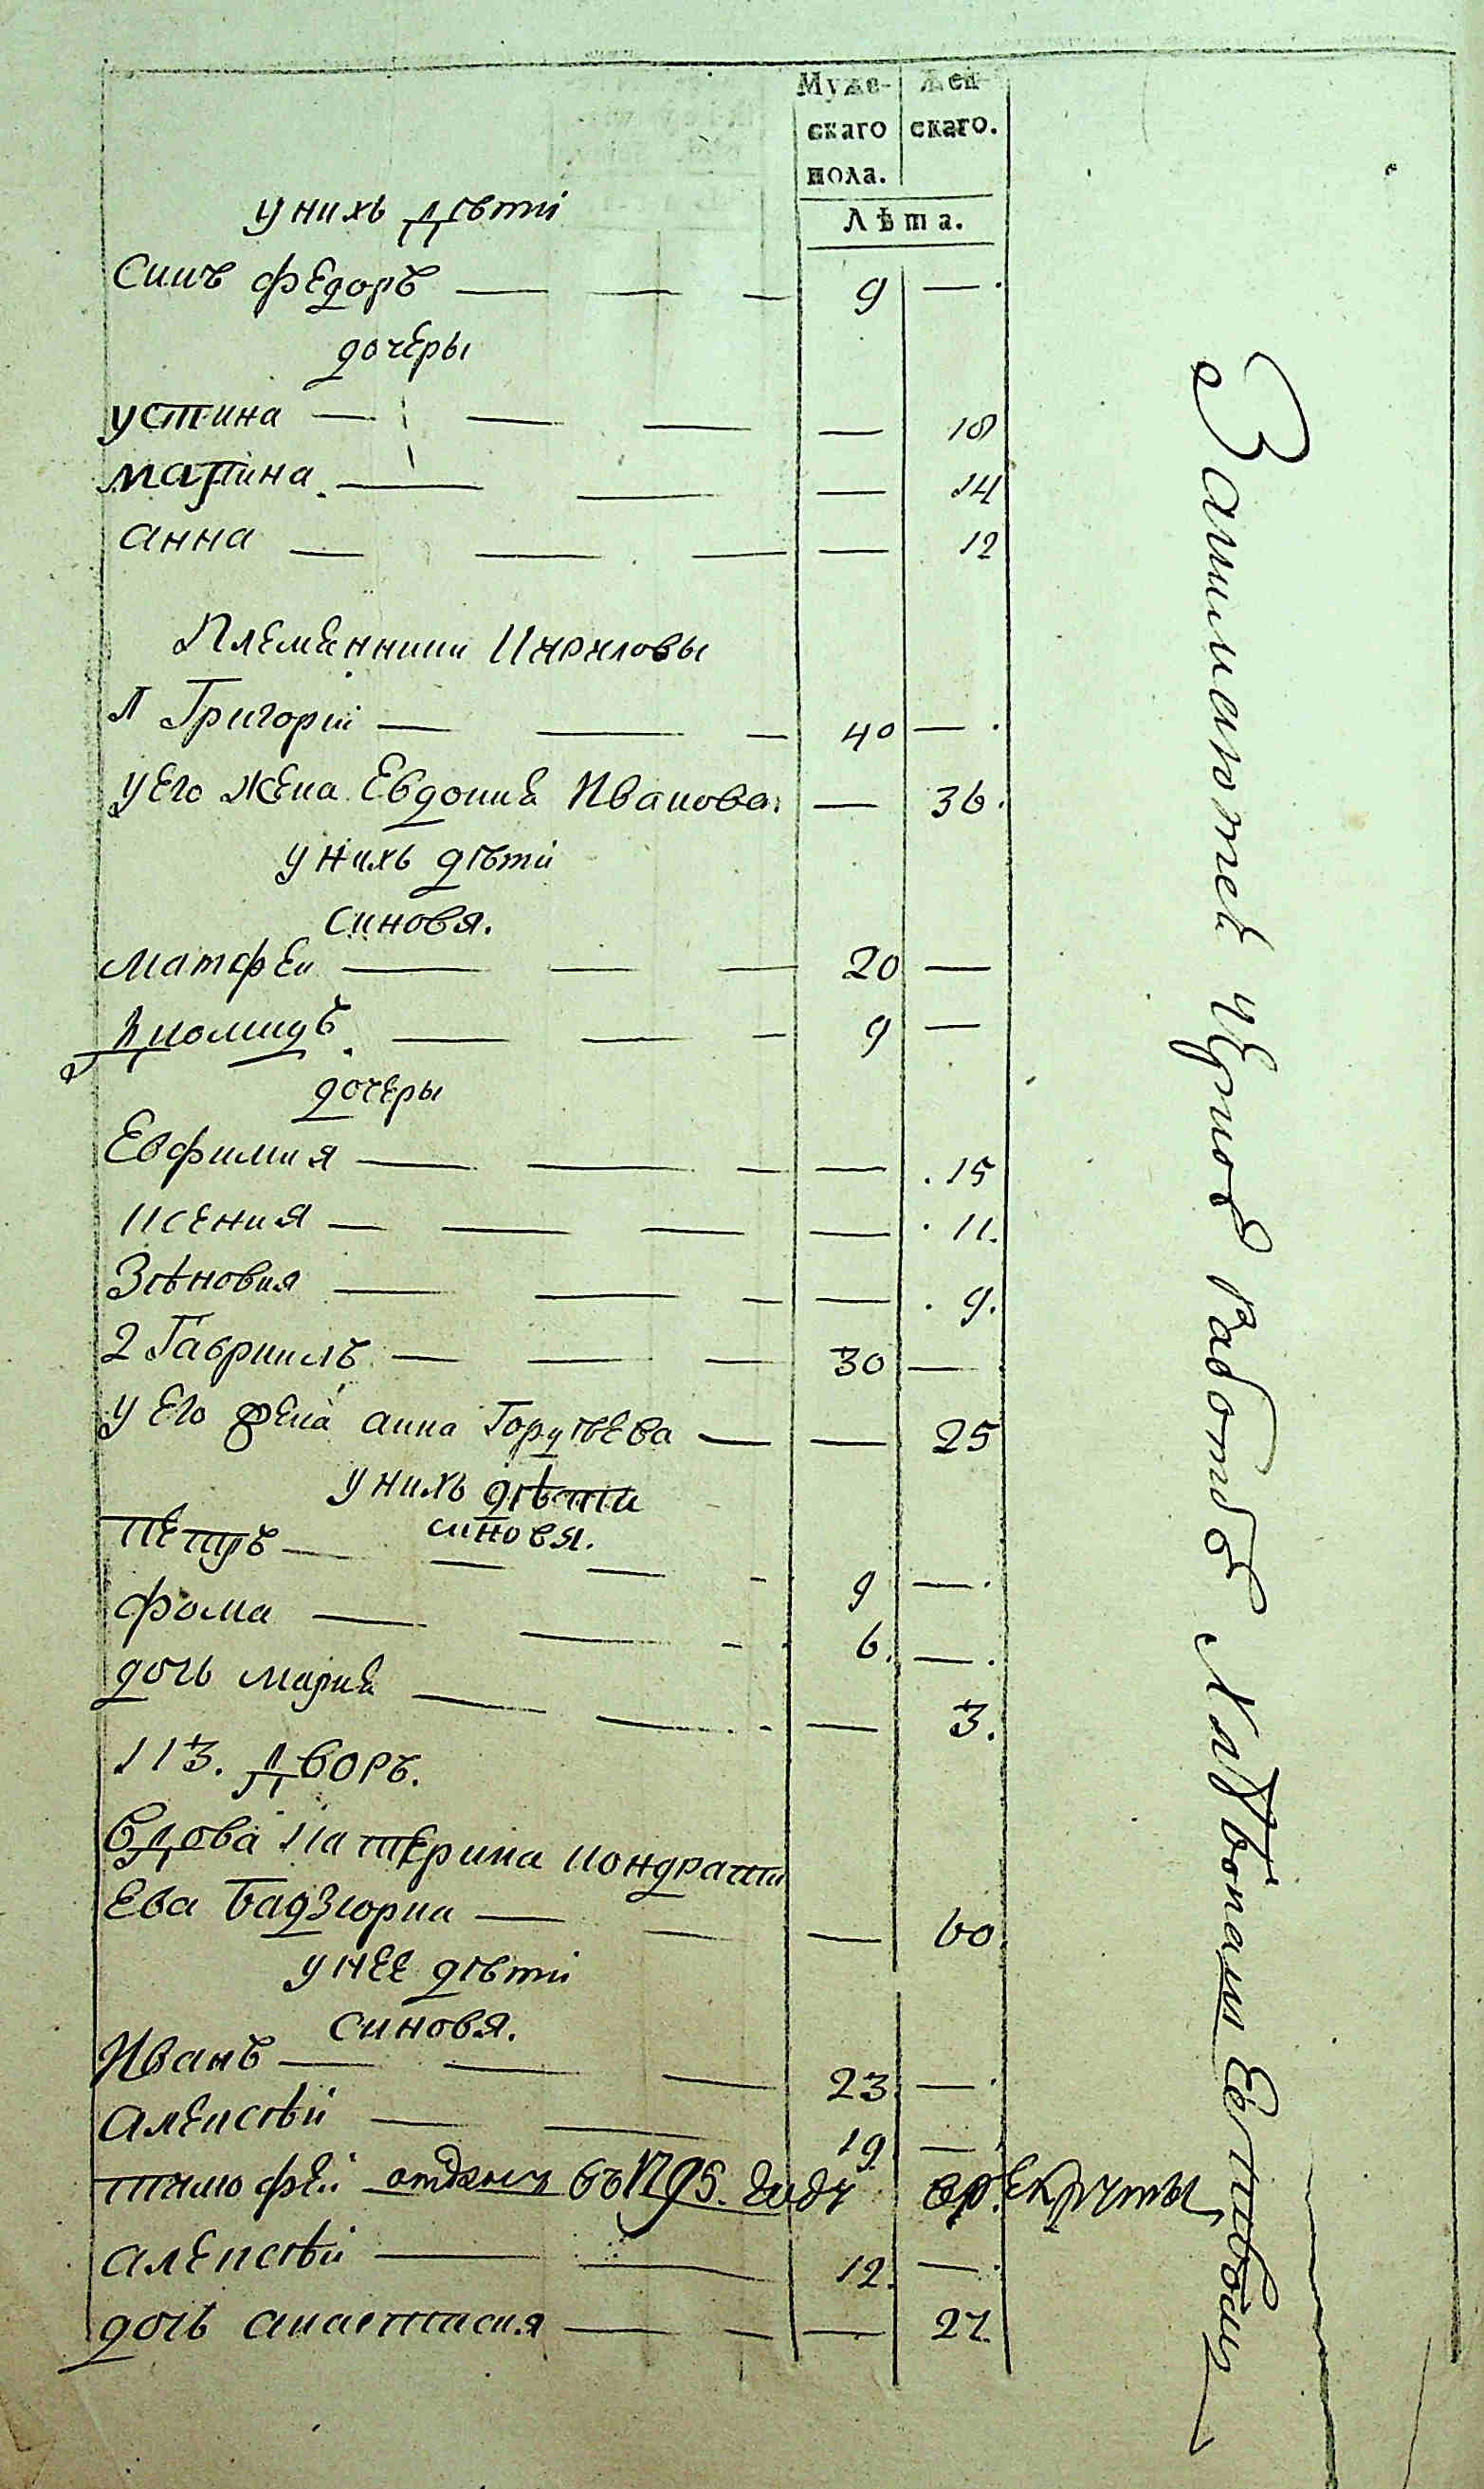 Муже- Жен-
скаго скаго.
пола.
Лѣта.
унихъ дѣти
Синъ федоръ — — — 9 — .
дочеры
устина — — — — 18
матина — — — 14
анна — — — — 12
Племенники Кириловы
Григорій — — — 40 — .
уего жена Евдокиа Иванова — 36.
унихъ дѣти
синовя.
матфеи — — — 20 —
Диомидъ — — — 9 —
дочеры
Евфимия — — — — . 15
ксения — — — — . 11.
Зѣновия — — — — . 9.
2 Гавриилъ — — — 30 —
уего жена анна Гордѣева — — 25
унихъ дѣти
синовя.
петръ — — — - 9 — .
фома — — - 6. — .
дочь мариа — — - — 3.
113. Дворъ.
Вдова катерина кондрати
ева Бадзюрка — — — 60.
унее дѣти
синовя.
Иванъ — — — 23. — .
алексѣй — — 19. — .
тимофей отданъ въ 1795. году в рекруты
алексѣй — — 12. — .
дочь анастасия — — — 27.